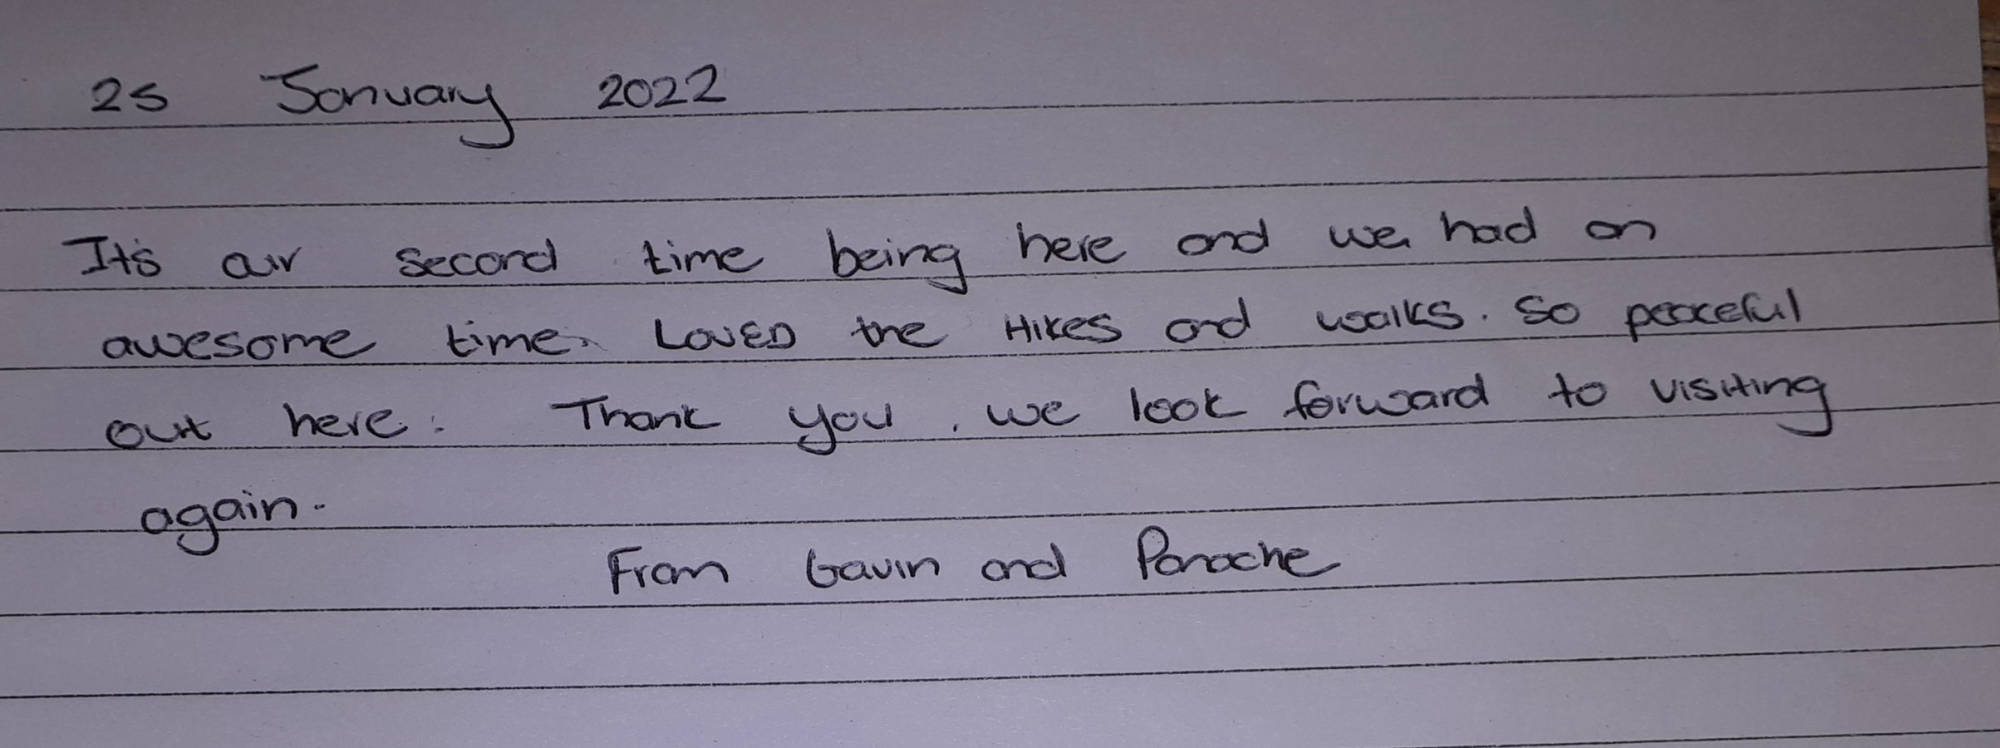 25 January 2022
It's our second time being here and we had an
awesome time. Loved the Hikes and walks. So peaceful
out here. Thank you, we look forward to visiting
again.
From Gavin and Panache